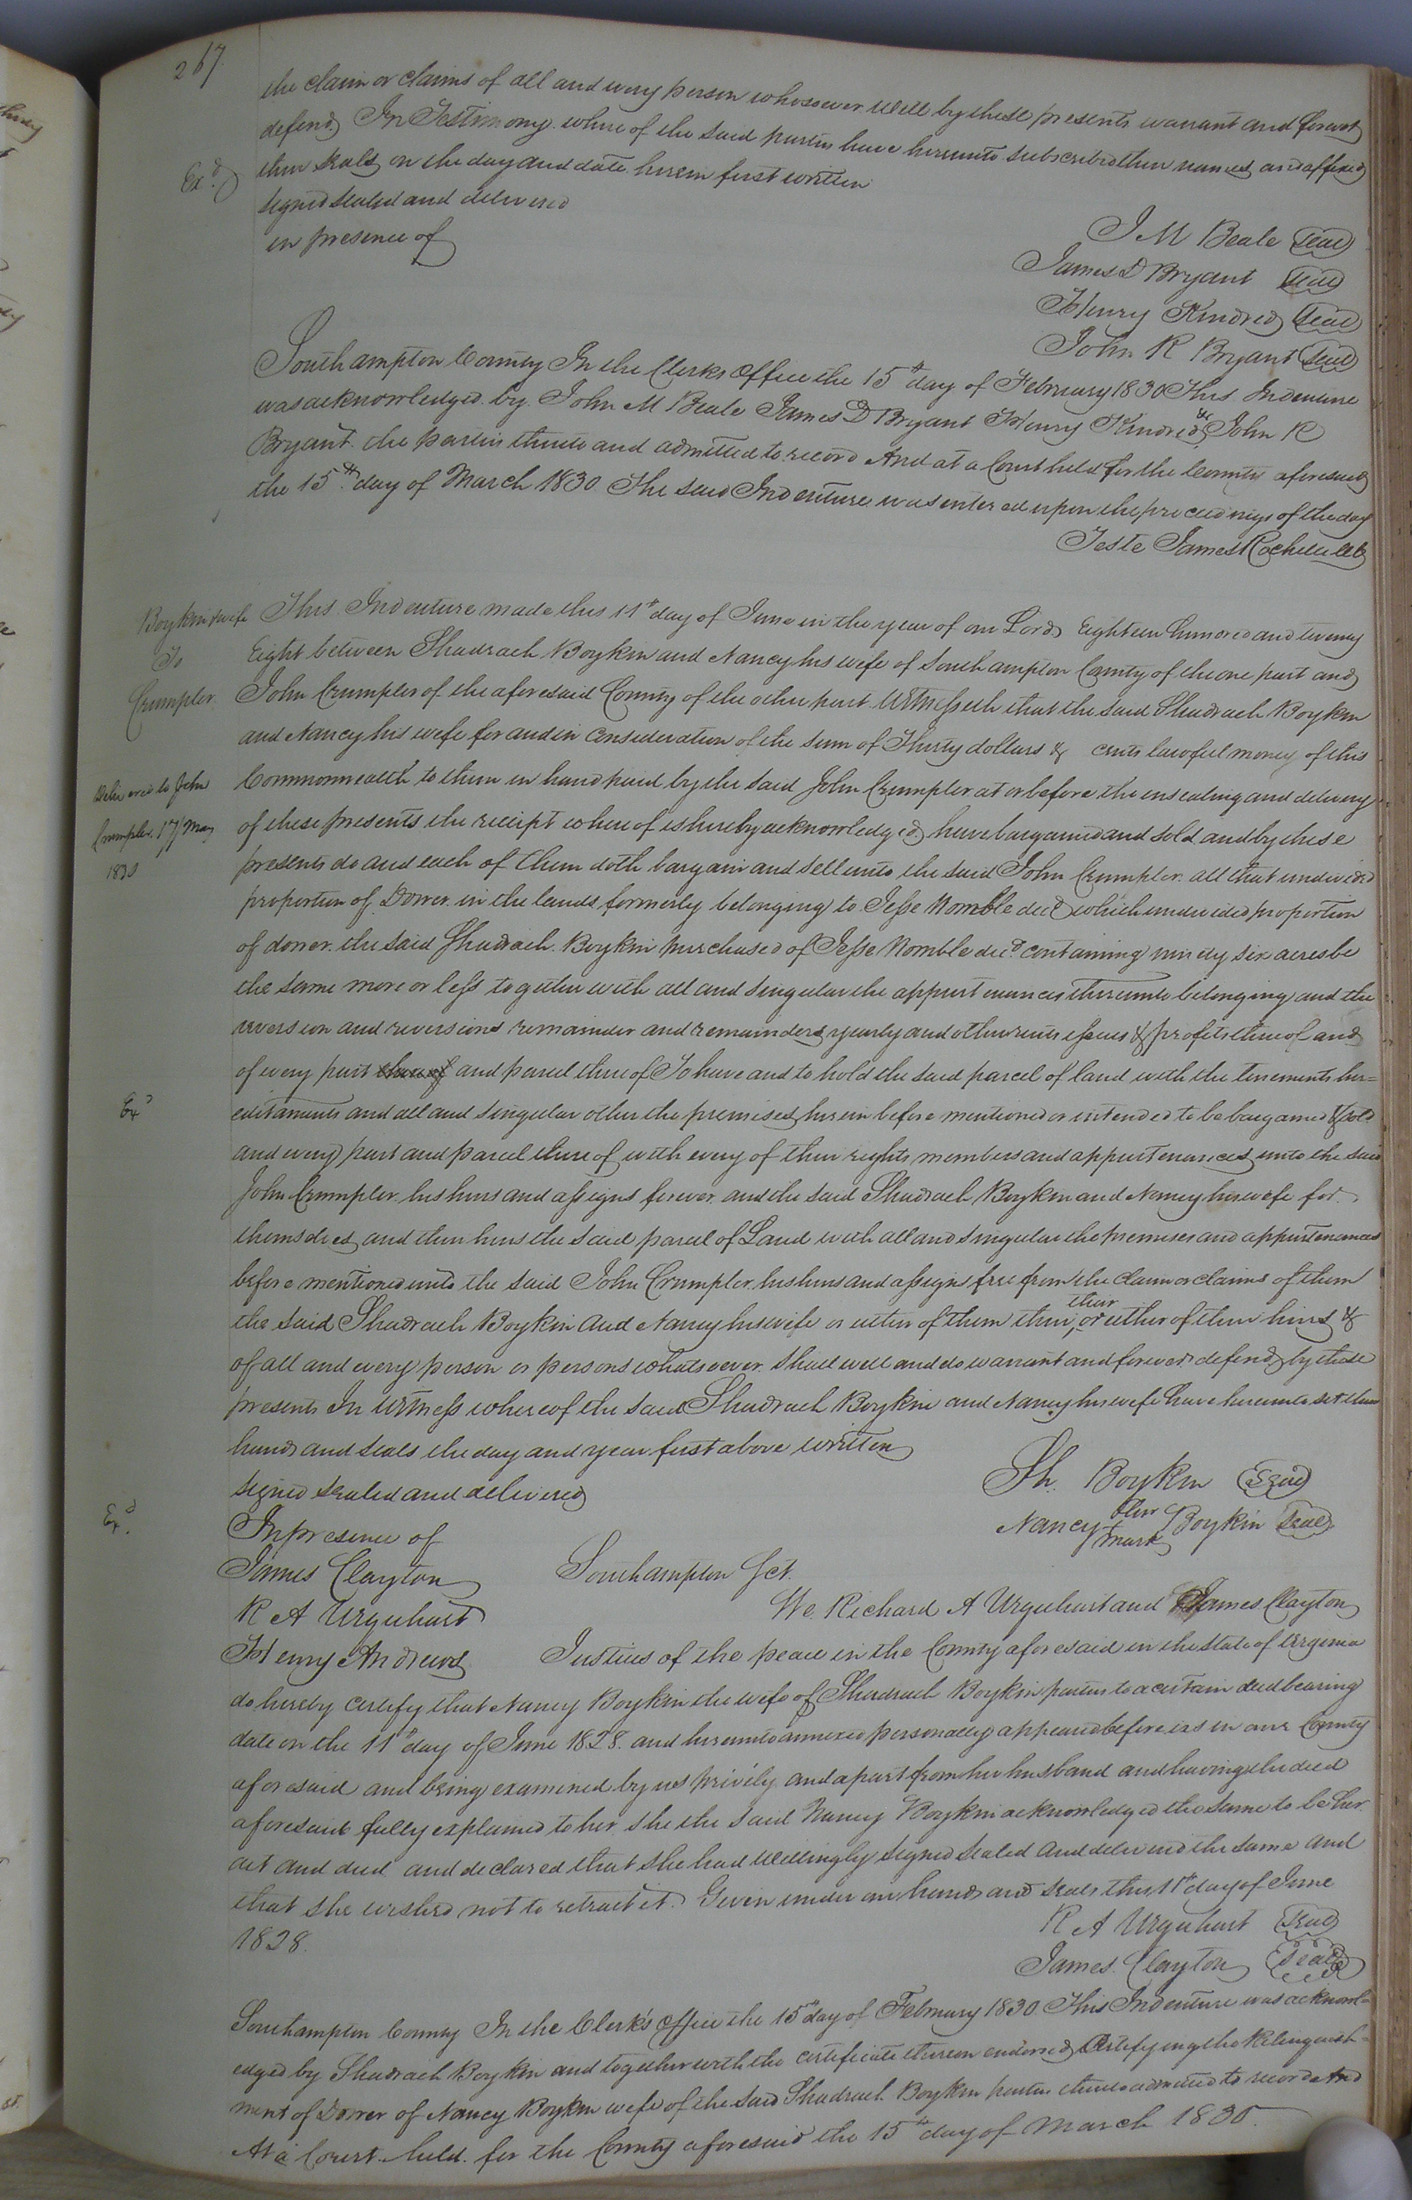 267
the claim or claims of all and every person whosoever will by these presents warrant and forever
defend In Testimony where of the said parties have hereunto subscribed their names and affixed
Exd. their seals on the day and date herein first written
signed sealed and delivered
in presence of
J M Beale Seal
James D Bryant Seal
Henry Kindred Seal
John R Bryant Seal
Southampton County In the Clerks Office the 15th day of February 1830 This Indenture
was acknowledged by John M Beale James D Bryant Henry Kindred & John R
Bryant the parties thereto and admitted to record And at a Court held for the County aforesaid
the 15th day of March 1830 The said Indenture was entered upon the proceedings of the day
Teste James Rochelle
Boykin & wife This Indenture made this 11th day of June in the year of our Lord Eighteen hundred and twenty
To Eight between Shadrach Boykin and Nancy his wife of Southampton County of the one part and
Crumpler John Crumpler of the aforesaid County of the other part Witnesseth that the said Shadrach Boykin
and Nancy his wife for and in Consideration of the sum of Thirty dollars & cents lawful money of this
Delivered to John Commonwealth to them in hand paid by the said John Crumpler at or before the ensealing and delivery
Crumpler 17 May of these presents the receipt where of is hereby acknowledged have bargained and sold and by these
183 presents do and each of them doth bargain and sell unto the said John Crumpler all that undivided
proportion of Dower in the lands formerly belonging to Jesse Womble decd which undivided proportion
of dower the said Shadrach Boykin purchased of Jesse Womble decd containing ninety six acres be
the same more or less together with all and singular the appurtenances thereunto belonging and the
reversion and reversions remainder and remainders yearly and other rents issues & profits thereof and
of every part thereof and parcel thereof To have and to hold the said parcel of land with the tenements her=
Exd editaments and all and singular other the premises herein before mentioned or intended to be bargained & sold
and every part and parcel there of with every of their rights members and appurtenances unto the said
John Crumpler his heirs and assigns forever and the said Shadrach Boykin and Nancy his wife for
themselves and their heirs the said parcel of Land with all and singular the premises and appurtenances
before mentioned unto the said John Crumpler his heirs and assigns free from the claim or claims of them
the said Shadrach Boykin and Nancy his wife or either of them their their or either of their heirs &
of all and every person or persons whatsoever shall well and do warrant and forever defend by these
presents In Witness whereof the said Shadrach Boykin and Nancy his wife have hereunto set their
hands and seals the day and year first above written
signed sealed and delivered
Sh. Boykin Seal
Exd. In presence of
Nancy her mark Boykin Seal
James Clayton
R A Urquhart
Henry Andrews
Southampton Sct.
We Richard A Urquhart and James Clayton
Justices of the peace in the County aforesaid in the State of Virginia
do hereby certify that Nancy Boykin the wife of Shadrach Boykin parties to a certain deed bearing
date on the 11th day of June 1828 and hereunto annexed personally appeared before us in our County
aforesaid and being examined by us privily and apart from her husband and having the deed
aforesaid fully explained to her she the said Nancy Boykin acknowledged the same to be her
act and deed and declared that she had willingly signed sealed and delivered the same and
that she wished not to retract it. Given under our hands and seals this 11th day of June
1828.
R A Urquhart Seal
James Clayton Seal
Southampton County In the Clerk's Office the 15th day of February 1830 This Indenture was acknowl=
edged by Shadrach Boykin and together with the certificate thereon endorsed Certifying the Relinquish=
ment of Dower of Nancy Boykin wife of the said Shadrach Boykin parties thereto admitted to record And
At a Court held for the County aforesaid the 15th day of March 1830